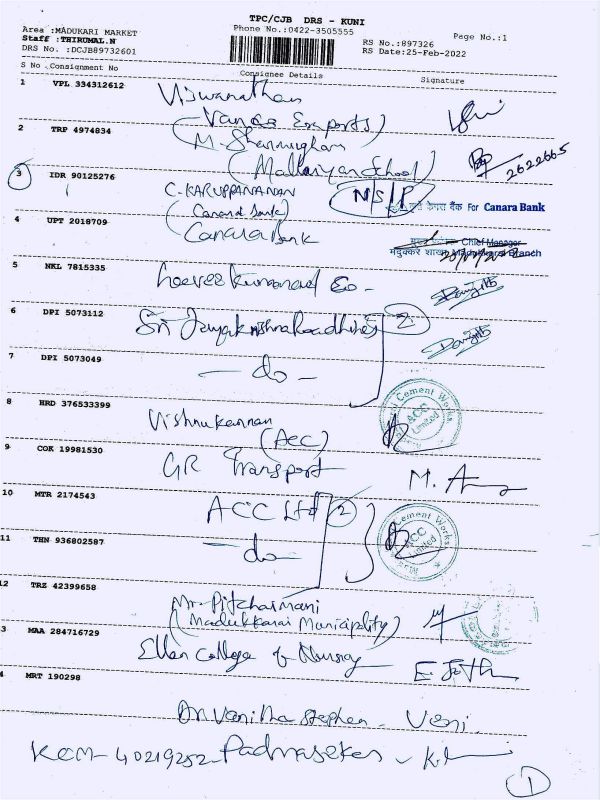 TPC/CJB DRS - KUNI
Area :MADUKARI MARKET
Phone No.:0422-3505555
Page No.:1
Staff :THIRUMAL.N
RS No.:897326
DRS No. :DCJB89732601
RS Date:25-Feb-2022
S No Consignment No Consignee Details Signature
1 VPL 334312612 Viswanathan
(Vanaa Exports)
2 TRP 4974834 M. Shanmugham
(Malliayan School) 2622665
3 IDR 90125276 C. KARUPPANANAN N/S/P
(Canara Bank) कृते केनरा बैंक For Canara Bank
4 UPT 2018709 Canara Bank
Chief Manager
मदुक्करै शाखा Madukkarai Branch
5 NKL 7815335
6 DPI 5073112 Sri Jayakrishna 2
7 DPI 5073049 - do -
8 HRD 376533399 Vishnukannan
(ACC)
Cement Works
ACC Limited
9 COK 19981530 GR Transport M.
10 MTR 2174543 ACC Ltd 2
Cement Works
ACC Limited
11 THN 936802587 - do -
12 TRZ 42399658 Mr. Pitchaimani
(Madukkarai Municipality)
3 MAA 284716729 Ellen College of Nursing
4 MRT 190298
Dr. Vanitha Stephen - Veni.
KCM-40219252 Padmasekar -
1